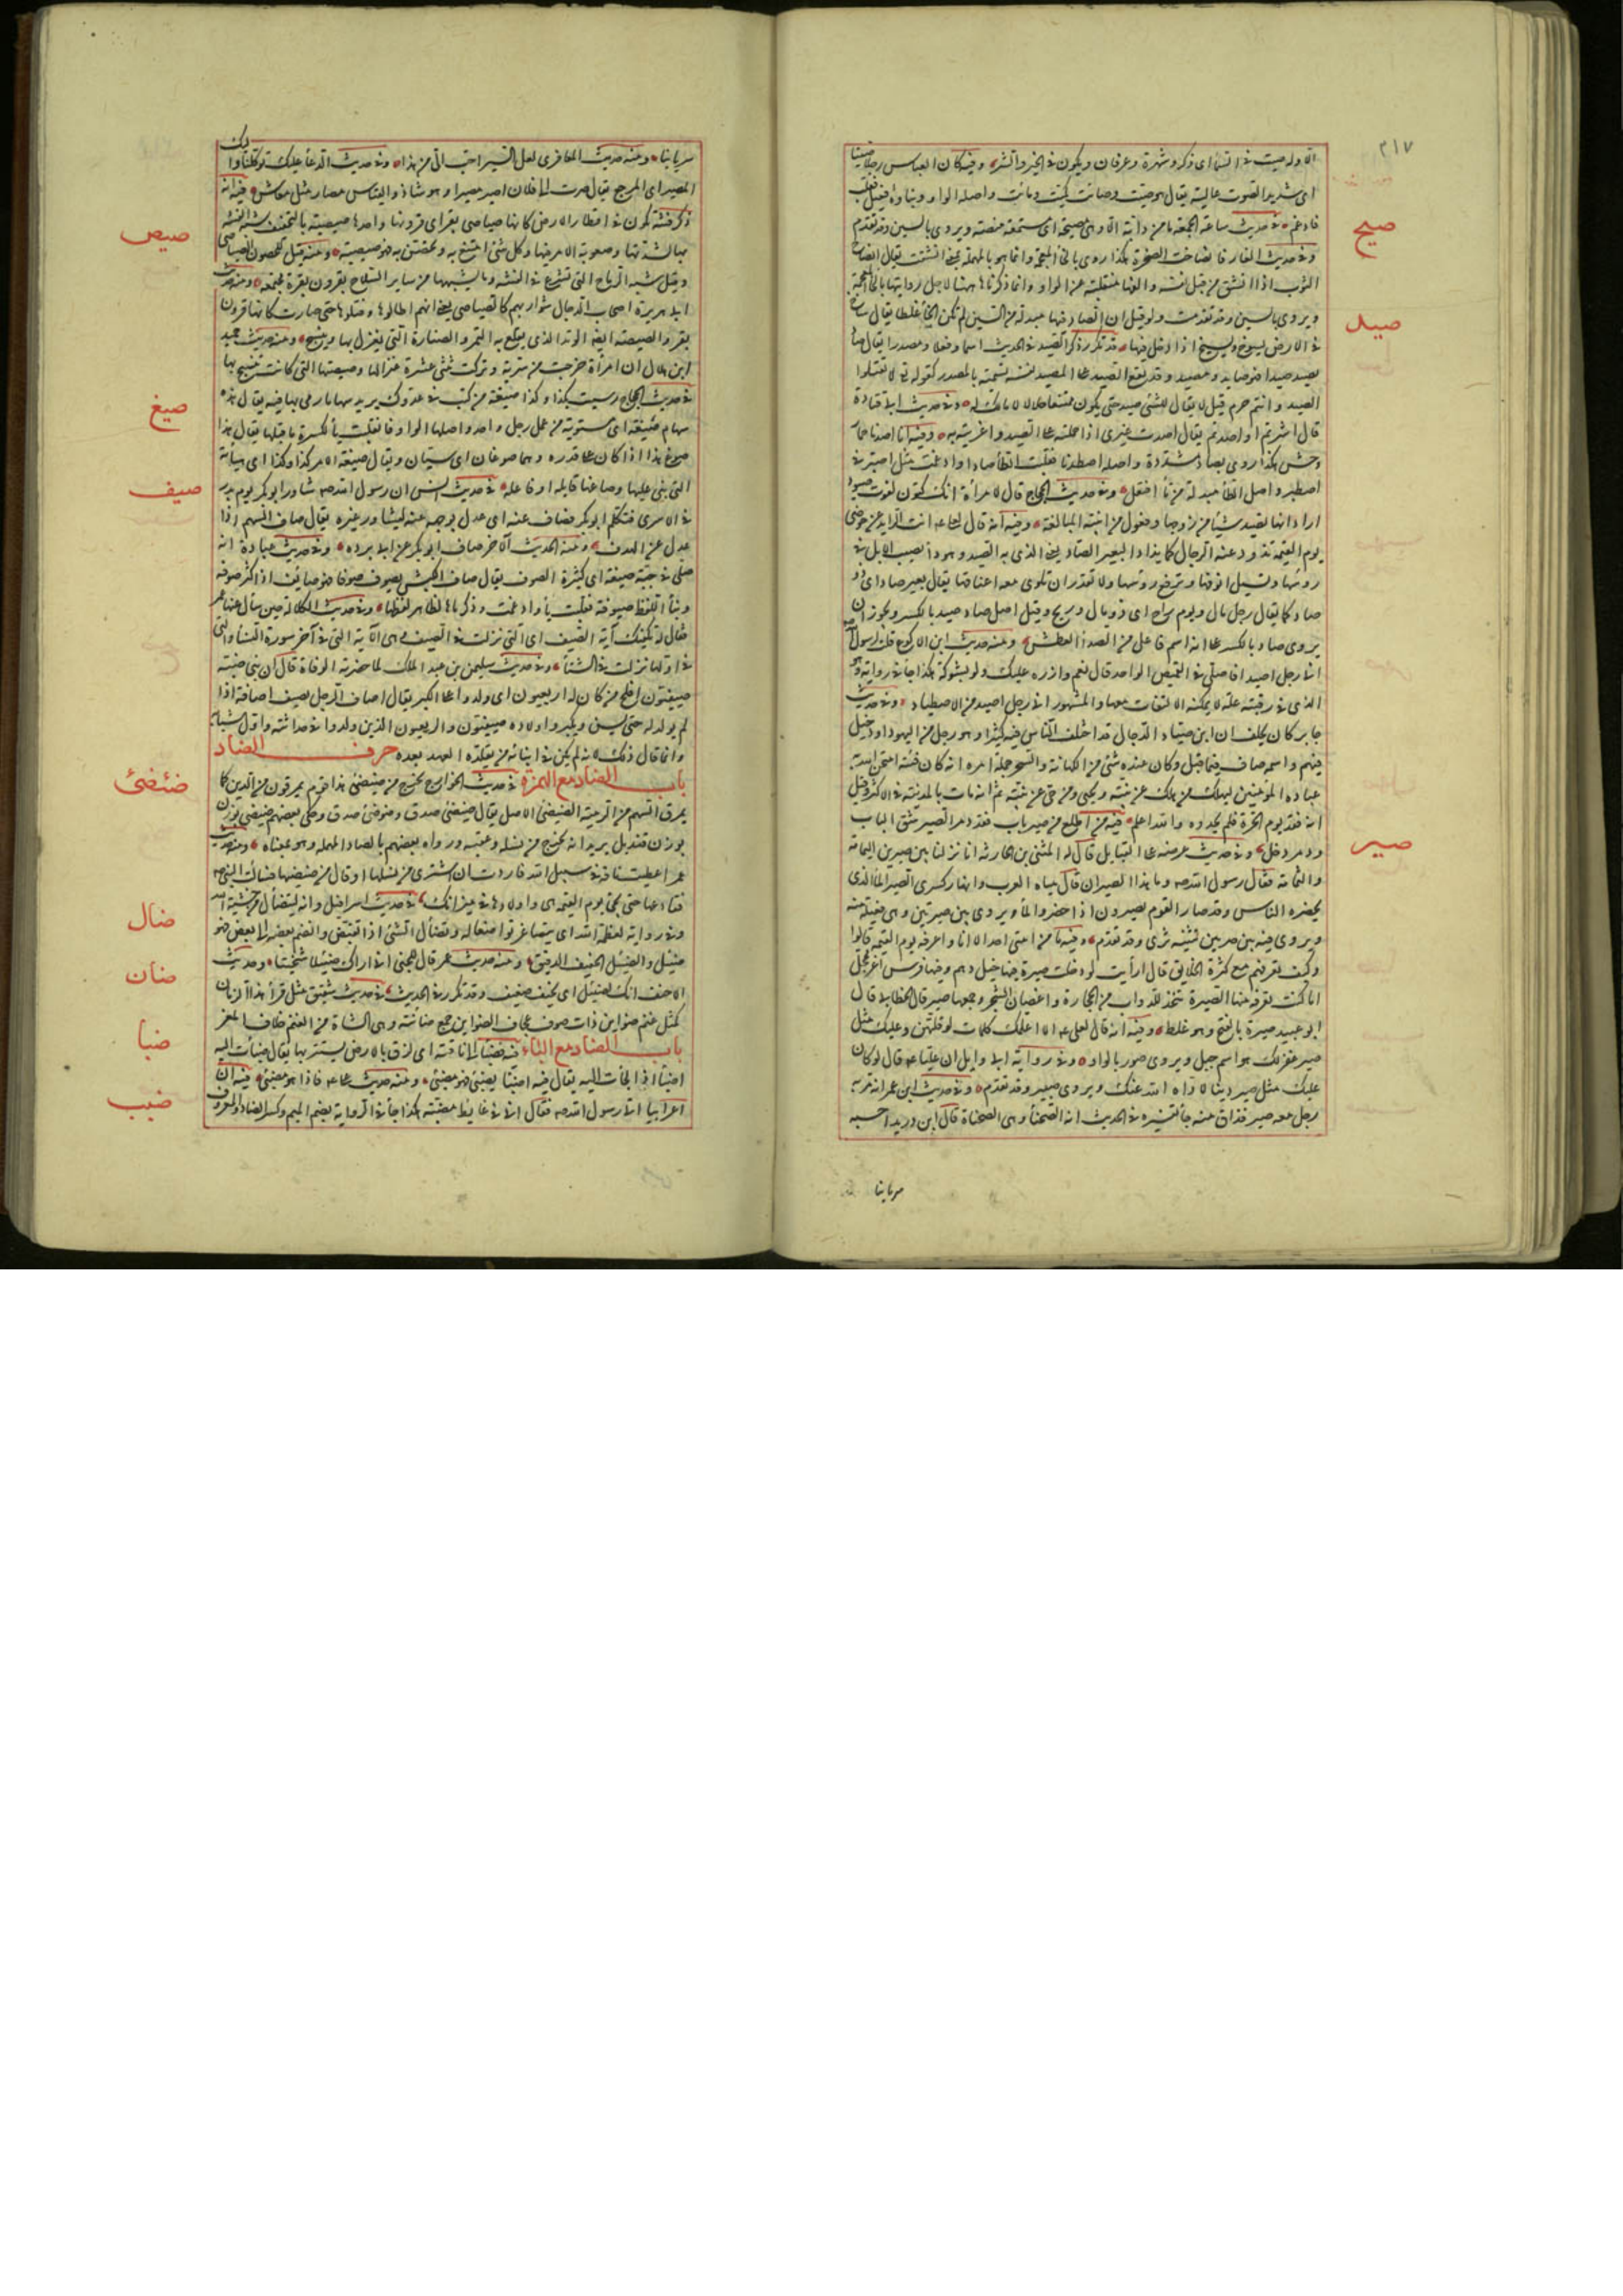 ٢١٧
الا وله صيت في السماء اى ذكر وشهرة وعرفان ويكون في الخير والشر وفيه كان العباس رجلا صيتا
اى شديد الصوت عاليه يقال هو صيت وصائت كميت ومائت واصله الواو وبناؤه فيعل فقلب
صيح
فادغم في حديث ساعة الجمعة ما من دابة الا وهى مصيخة اى مستمعة منصتة ويروى بالسين وقد تقدم
وفي حديث الغار فانصاخت الصخرة هكذا روى بالخاء المعجمة وانما هو بالمهملة بمعنى انشقت يقال انصاخ
الثوب اذا انشق من قبل نفسه والفها منقلبة عن الواو وانما ذكرناها ههنا لاجل روايتها بالخاء المعجمة
ويروى بالسين وقد تقدمت ولو قيل ان الصاد فيها مبدلة من السين لم تكن الخاء غلطا يقال ساخ
صيد
في الارض يسوخ ويسيخ اذا دخل فيها قد تكرر ذكر الصيد في الحديث اسما وفعلا ومصدرا يقال صاد
يصيد صيدا فهو صايد ومصيد وقد يقع الصيد على المصيد نفسه تسمية بالمصدر كقوله تعالى لا تقتلوا
الصيد وانتم حرم قيل لا يقال للشئ صيد حتى يكون ممتنعا حلالا لا مالك له وفي حديث ابى قتادة
قال اشرتم او اصدتم يقال اصدت غيرى اذا حملته على الصيد واغريته به وفيه انا اصدنا حمار
وحش هكذا روى بصاد مشددة واصله اصطدنا فقلبت الطاء صادا وادغمت مثل اصبر في
اصطبر واصل الطاء مبدلة من تاء افتعل وفي حديث الحجاج قال لامرأة انك كتون لفوت صيود
اراد انها تصيد شيئا من زوجها وفعول من ابنية المبالغة وفيه انه قال لعلى انت الذايد عن حوضى
يوم القيمة تذود عنه الرجال كما يذاد البعير الصاد يعنى الذى به الصيد وهو داء يصيب الابل في
رؤسها وتسيل انوفها وترفع رؤسها ولا تقدر ان تلوى معه اعناقها يقال بعير صاد اى ذو
صاد كما يقال رجل مال ويوم راح اى ذو مال وريح وقيل اصل صاد صيد بالكسر ويجوز ان
يروى صاد بالكسر على انه اسم فاعل من الصدى العطش ومنه حديث ابن الاكوع قلت لرسول الله
انى رجل اصيد افاصلى في القميص الواحد قال نعم وازرره عليك ولو بشوكة هكذا جاء في رواية وهو
الذى في رقبته علة لا يمكنه الالتفات معها والمشهور انى رجل اصيد من الاصطياد وفي حديث
جابر كان يحلف ان ابن صياد الدجال قد اختلف الناس فيه كثيرا وهو رجل من اليهود او دخيل
فيهم واسمه صاف فيما قيل وكان عنده شئ من الكهانة والسحر وجملة امره انه كان فتنة امتحن الله به
عباده المؤمنين ليهلك من هلك عن بينة ويحيى من حى عن بينة ثم انه مات بالمدينة في الاكثر وقيل
صير
انه فقد يوم الحرة فلم يجدوه والله اعلم فيه من اطلع من صير باب فقد دمر الصير شق الباب
ودمر دخل وفي حديث عرضه على القبايل قال له المثنى بن حارثة انا نزلنا بين صيرين اليمامة
والشامة فقال رسول الله وما هذا الصيران قال مياه العرب وانهار كسرى الصير الماء الذى
يحضره الناس وقد صار القوم يصيرون اذا حضروا الماء ويروى بين صيرتين وهى فعيلة منه
ويروى فيه بين صريين تثنية صرى وقد تقدم وفيه ما من امتى احد الا انا واعرفه يوم القيمة قالوا
وكيف تعرفهم مع كثرة الخلائق قال ارأيت لو دخلت صيرة فيها خيل دهم وفيها فرس اغر محجل
اما كنت تعرفه منها الصيرة تتخذ للدواب من الحجارة واغصان الشجر وجمعها صير قال الخطابى قال
ابو عبيد صيرة بالفتح وهو غلط وفيه انه قال لعلى الا اعلمك كلمات لو قلتهن وعليك مثل
صير غفر لك هو اسم جبل ويروى صور بالواو وفي رواية ابى وايل ان عليا قال لو كان
عليك مثل صير دينا لاداه الله عنك ويروى صبير وقد تقدم وفي حديث ابن عمر انه مر به
رجل معه صير فذاق منه جاء تفسيره في الحديث انه الصحناء وهى الصحناة قال ابن دريد احسبه
سريانيا
سريانيا ومنه حديث المعافرى لعل الصير احب الى من هذا وفي حديث الدعاء عليك توكلنا واليك
المصير اى المرجع يقال صرت الى فلان اصير مصيرا وهو شاذ والقياس مصار مثل معاش فيه انه
صيص
ذكر فتنة تكون في اقطار الارض كانها صياصى بقر اى قرونها واحدها صيصية بالتخفيف شبه الفتنة
بها لشدتها وصعوبة الامر فيها وكل شئ امتنع به وتحصن به فهو صيصية ومنه قيل للحصون الصياصى
وقيل شبه الرماح التى تشرع في الفتنة وما يشبهها من ساير السلاح بقرون بقرة مجتمعة ومنه حديث
ابى هريرة اصحاب الدجال شواربهم كالصياصى يعنى انهم اطالوها وفتلوها حتى صارت كانها قرون
بقر والصيصية ايضا الوتد الذى يقلع به التمر والصنارة التى يغزل بها وينسج ومنه حديث حميد
ابن هلال ان امرأة خرجت من سرية وتركت ثنتى عشرة عنزا لها وصيصتها التى كانت تنسج بها
صيغ
في حديث الحجاج رميت بكذا وكذا صيغة من كثب في عدوك يريد سهاما رمى بها فيه يقال هذه
سهام صيغة اى مستوية من عمل رجل واحد واصلها الواو فانقلبت ياء لكسرة ما قبلها يقال هذا
صوغ هذا اذا كان على قدره وهما صوغان اى سيان ويقال صيغة الامر كذا وكذا اى هيأته
صيف
التى بنى عليها وصاغها قايله او فاعله في حديث انس ان رسول الله شاور ابو بكر يوم بدر
في الاسرى فتكلم ابو بكر فصاف عنه اى عدل بوجهه عنه ليشاور غيره يقال صاف السهم اذا
عدل عن الهدف ومنه الحديث الآخر صاف ابو بكر عن ابى برده وفي حديث عبادة انه
صلى في جبة صيفة اى كثيرة الصوف يقال صاف الكبش يصوف صوفا فهو صايف اذا كثر صوفه
وبناء اللفظ صيوفة فقلبت ياء وادغمت وذكرناها لظاهر لفظها وفي حديث الكلالة حين سأل عنها عمر
فقال له تكفيك آية الصيف اى التى نزلت في الصيف وهى الآية التى في آخر سورة النساء والتى
في اولها نزلت في الشتاء وفي حديث سليمن بن عبد الملك لما حضرته الوفاة قال ان بنى صبية
صيفيون افلح من كان له ربعيون اى ولدوا على الكبر يقال اصاف الرجل يصيف اصافة اذا
لم يولد له حتى يسن ويكبر واولاده صيفيون والربعيون الذين ولدوا في حداثته واول شبابه
وانما قال ذلك لانه لم يكن في ابنائه من يقلده العهد بعده حرف الضاد
ضئضئ
باب الضاد مع الهمزة في حديث الخوارج يخرج من ضئضئ هذا قوم يمرقون من الدين كما
يمرق السهم من الرمية الضئضئ الاصل يقال ضئضئ صدق وضوضؤ صدق وحكى بعضهم ضئضئ بوزن
بوزن قنديل يريد انه يخرج من نسله وعقبه ورواه بعضهم بالصاد المهملة وهو بمعناه ومنه حديث
عمر اعطيت ناقة في سبيل الله فاردت ان اشترى من نسلها او قال من ضئضئها فسألت النبى
ضال
فقال دعها حتى تجئ يوم القيمة هى واولادها في ميزانك في حديث اسرافيل وانه ليتضأل من خشية الله
وفي رواية لعظمة الله اى يتصاغر تواضعا له وتضأل الشئ اذا تقبض وانضم بعضه الى بعض فهو
ضئيل والضئيل النحيف الدقيق ومنه حديث عمر قال للجنى انى اراك ضئيلا شخيتا وحديث
ضان
الاحنف انك لضئيل اى نحيف ضعيف وقد تكرر في الحديث في حديث شقيق مثل قراء هذا الزمان
كمثل غنم ضواين ذات صوف عجاف الضواين جمع ضائنة وهى الشاة من الغنم خلاف المعز
ضبا
باب الضاد مع الباء فيه فضبأ الى ناقته اى لزق بالارض يستتر بها يقال ضبأت اليه
اضبأ اذا لجأت اليه يقال فيه اضبأ يضبئ فهو مضبئ ومنه حديث على فاذا هو مضبئ فيه ان
ضبب
اعرابيا اتى رسول الله فقال انى في غايط مضبة هكذا جاء في الرواية بضم الميم وكسر الضاد والمعروف